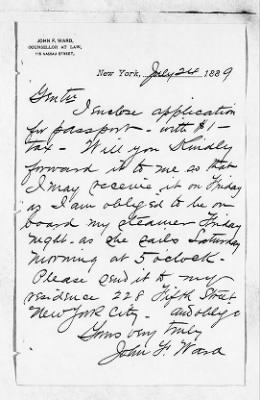 JOHN F. WARD,
COUNSELLOR AT LAW,
NASSAU STREET,
New York, July 24 1889
Gents
I enclose application
for passport - with $1 -
tax - Will you kindly
forward it to me so that
I may receive it on Friday
as I am obliged to be on
board my steamer Friday
night - as she sails Saturday
morning at 5 oclock -
Please send it to my
residence 228 Fifth Street
New York City - and oblige
Yours very truly
John F. Ward